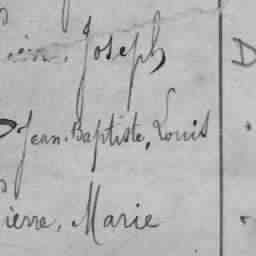 Joseph D
Jean-Baptiste, Louis
Pierre, Marie